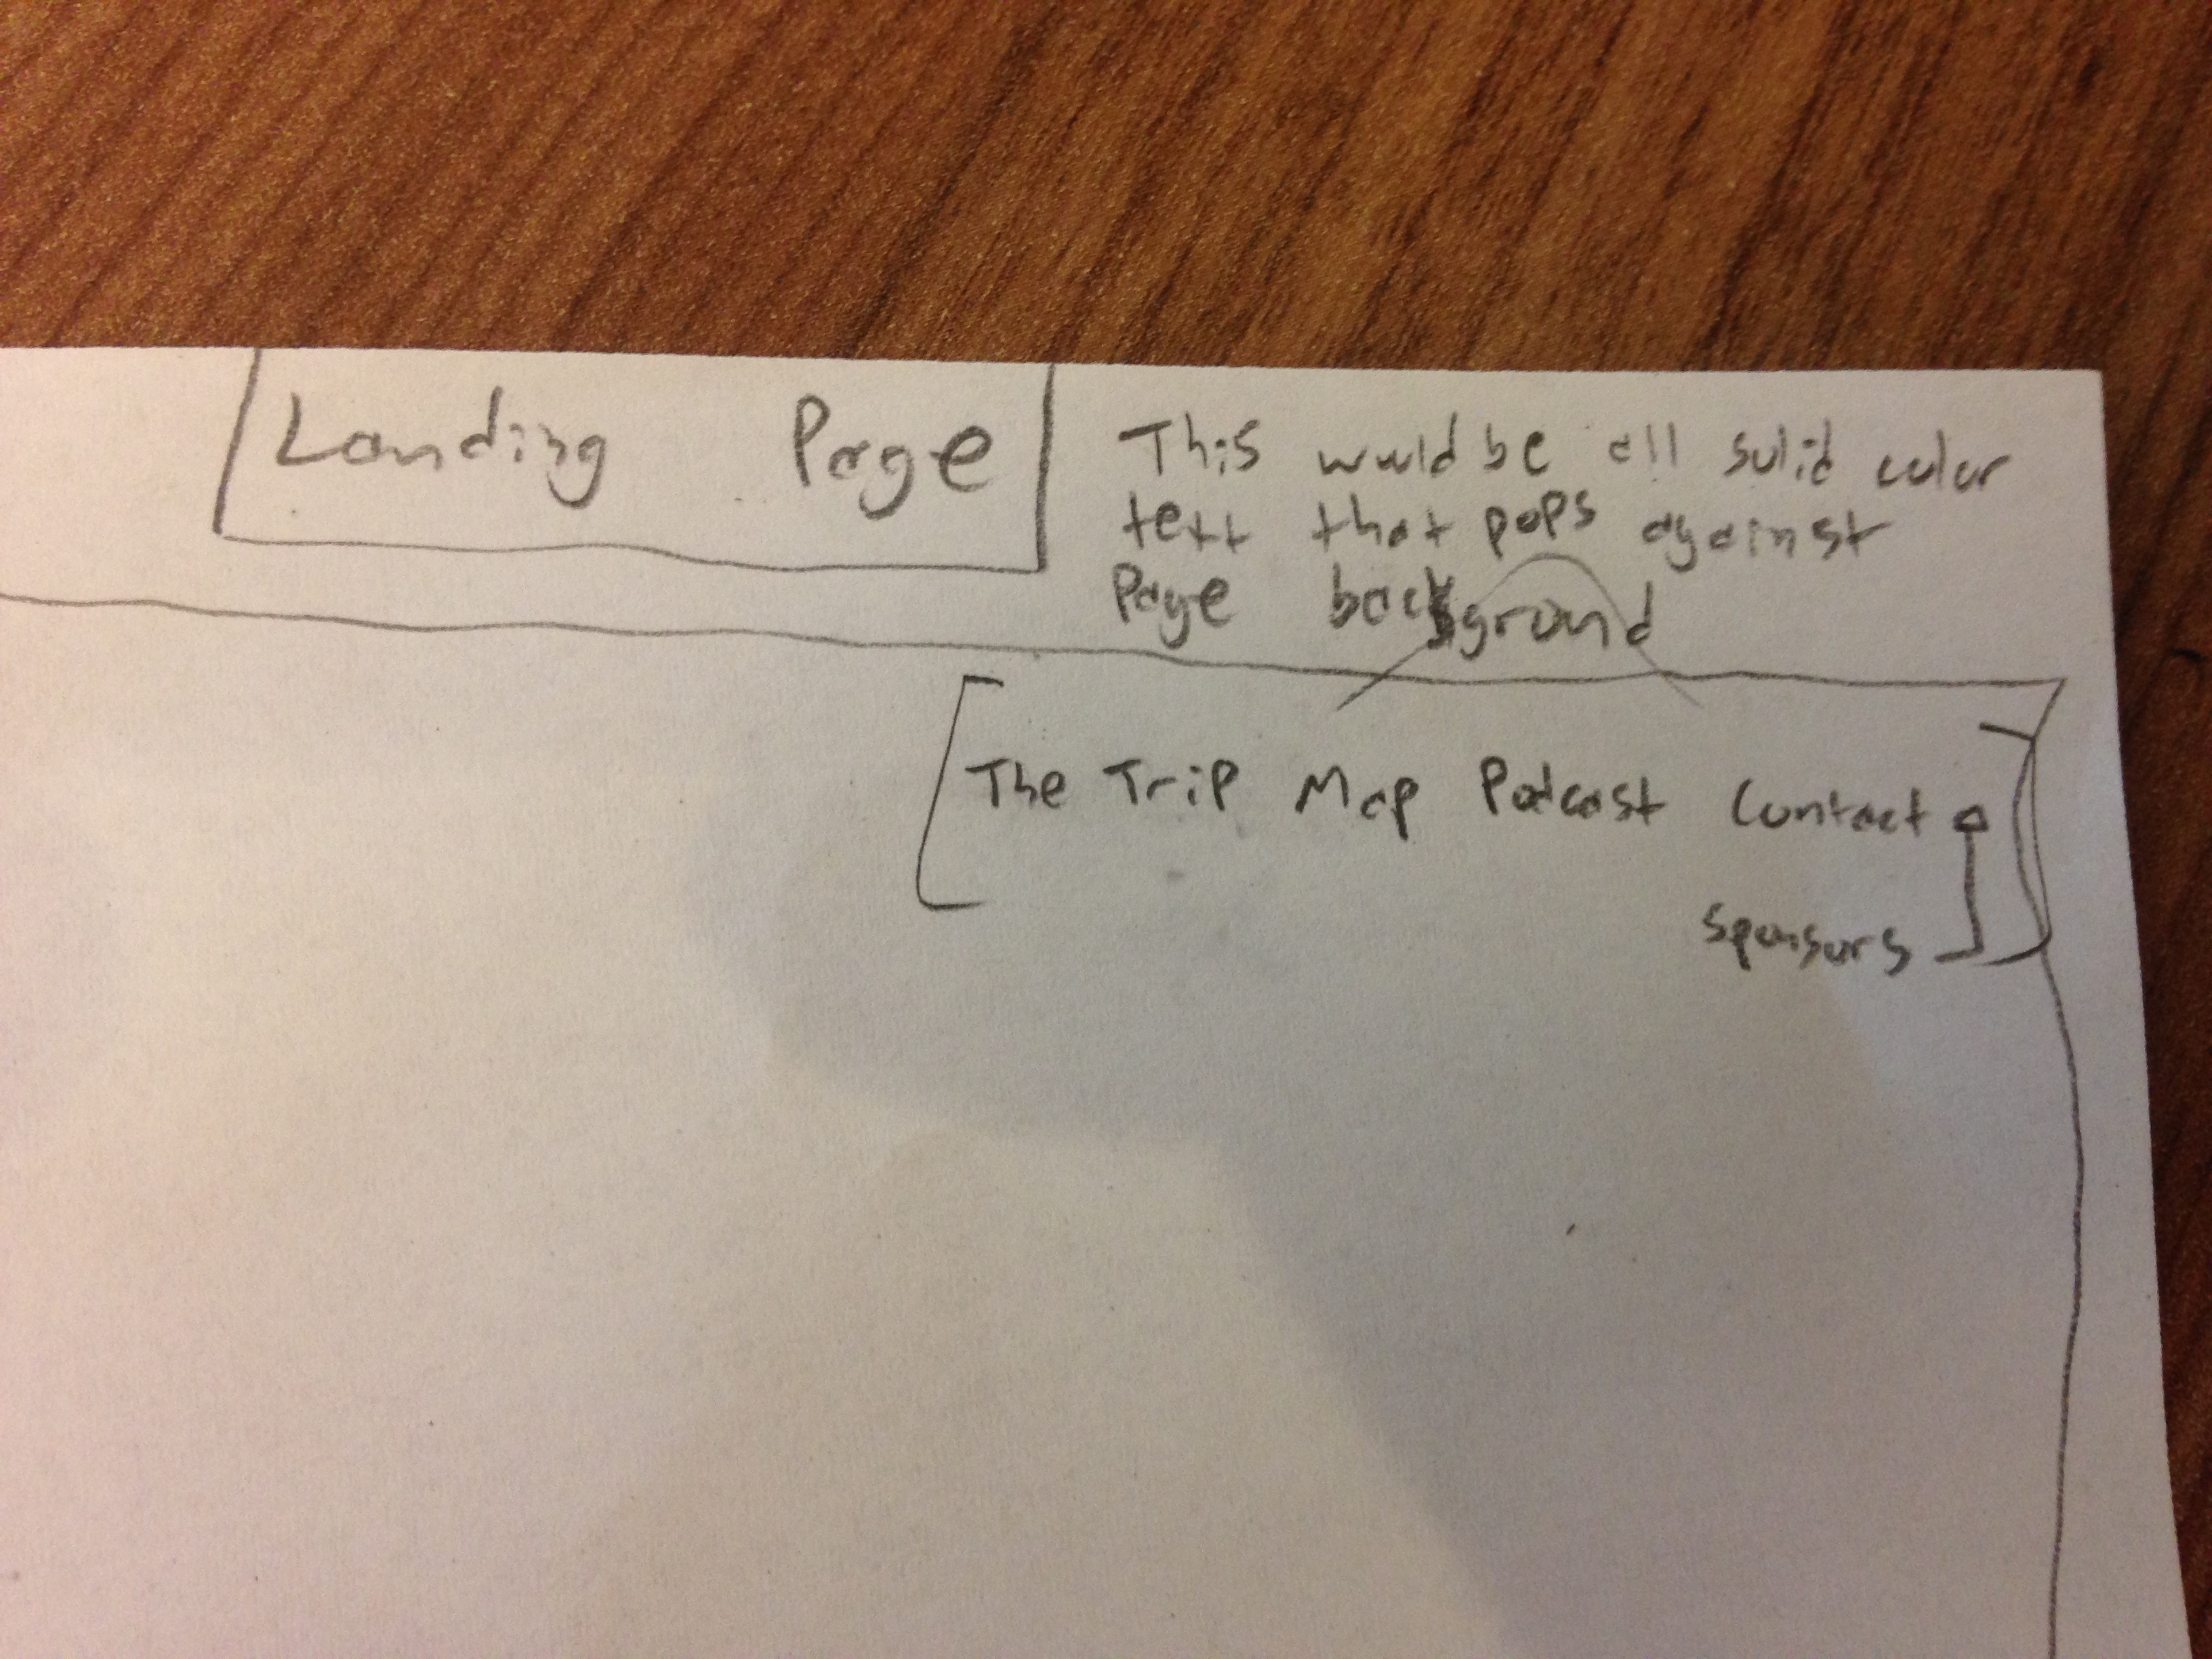 Landing Page
This would be all solid color
text that pops against
page background
The Trip Map Podcast Contact
Sponsors